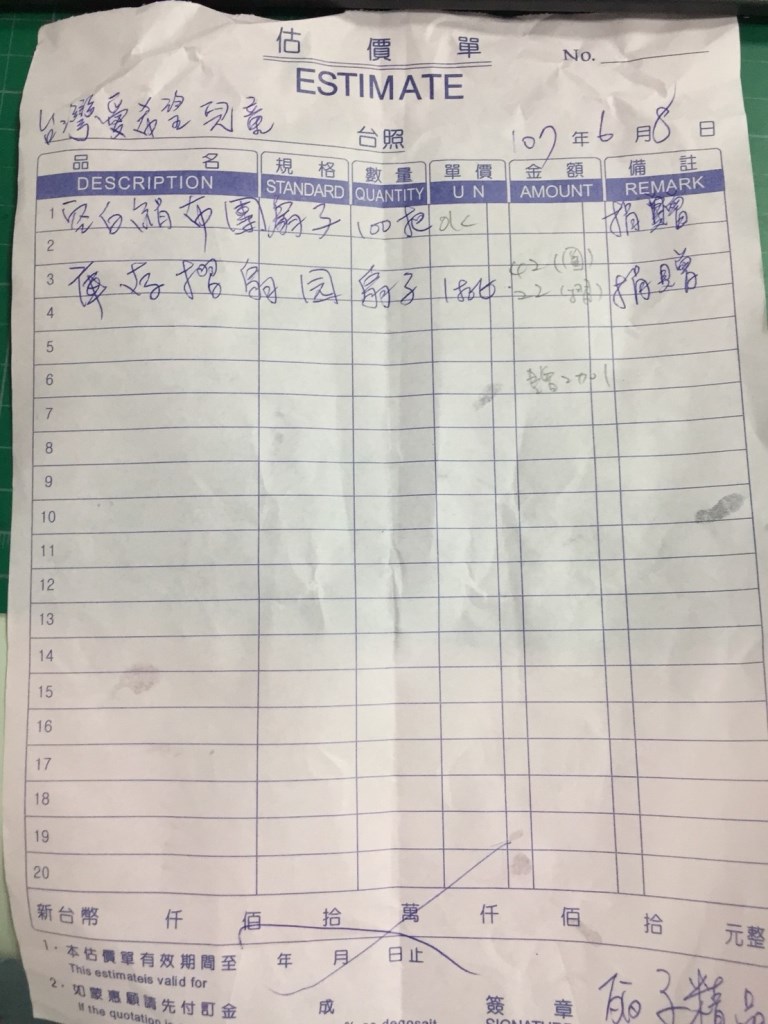 估價單 No.
ESTIMATE
台灣愛希望兒童 台照 107年6月8日
品名 規格 數量 單價 金額 備註
DESCRIPTION STANDARD QUANTITY U N AMOUNT REMARK
1 空白絹布團扇子 100把 ok 捐贈
2
42(圓)
3 庫存摺扇 园 扇子 1批 22(摺) 捐贈
4
5
6
7
8
9
10
11
12
13
14
15
16
17
18
19
20
新台幣 仟 佰 拾 萬 仟 佰 拾 元整
1.本估價單有效期間至 年 月 日止
This estimateis valid for
2.如蒙惠顧請先付訂金 成 簽章
If the quotation
扇子精品